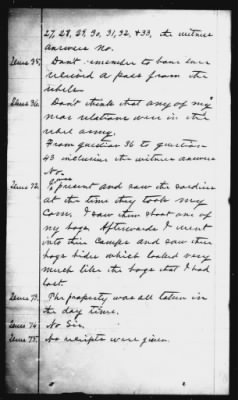 27, 28, 29, 30, 31, 32, & 33, the witness
answers no.
Ques 35. Don't remember to have ever
received a pass from the
rebels.
Ques 36. Don't think that any of my
near relations were in the
rebel army.
From question 36 to question
43 inclusive the witness answers
No.
Ques 72. I was present and saw the soldiers
at the time they took my
corn. I saw them shoot one of
my hogs. Afterwards I went
into their camps and saw their
hogs hides which looked very
much like the hogs that I had
lost.
Ques 73. The property was all taken in
the day time.
Ques 74. No Sir.
Ques 75. No receipts were given.